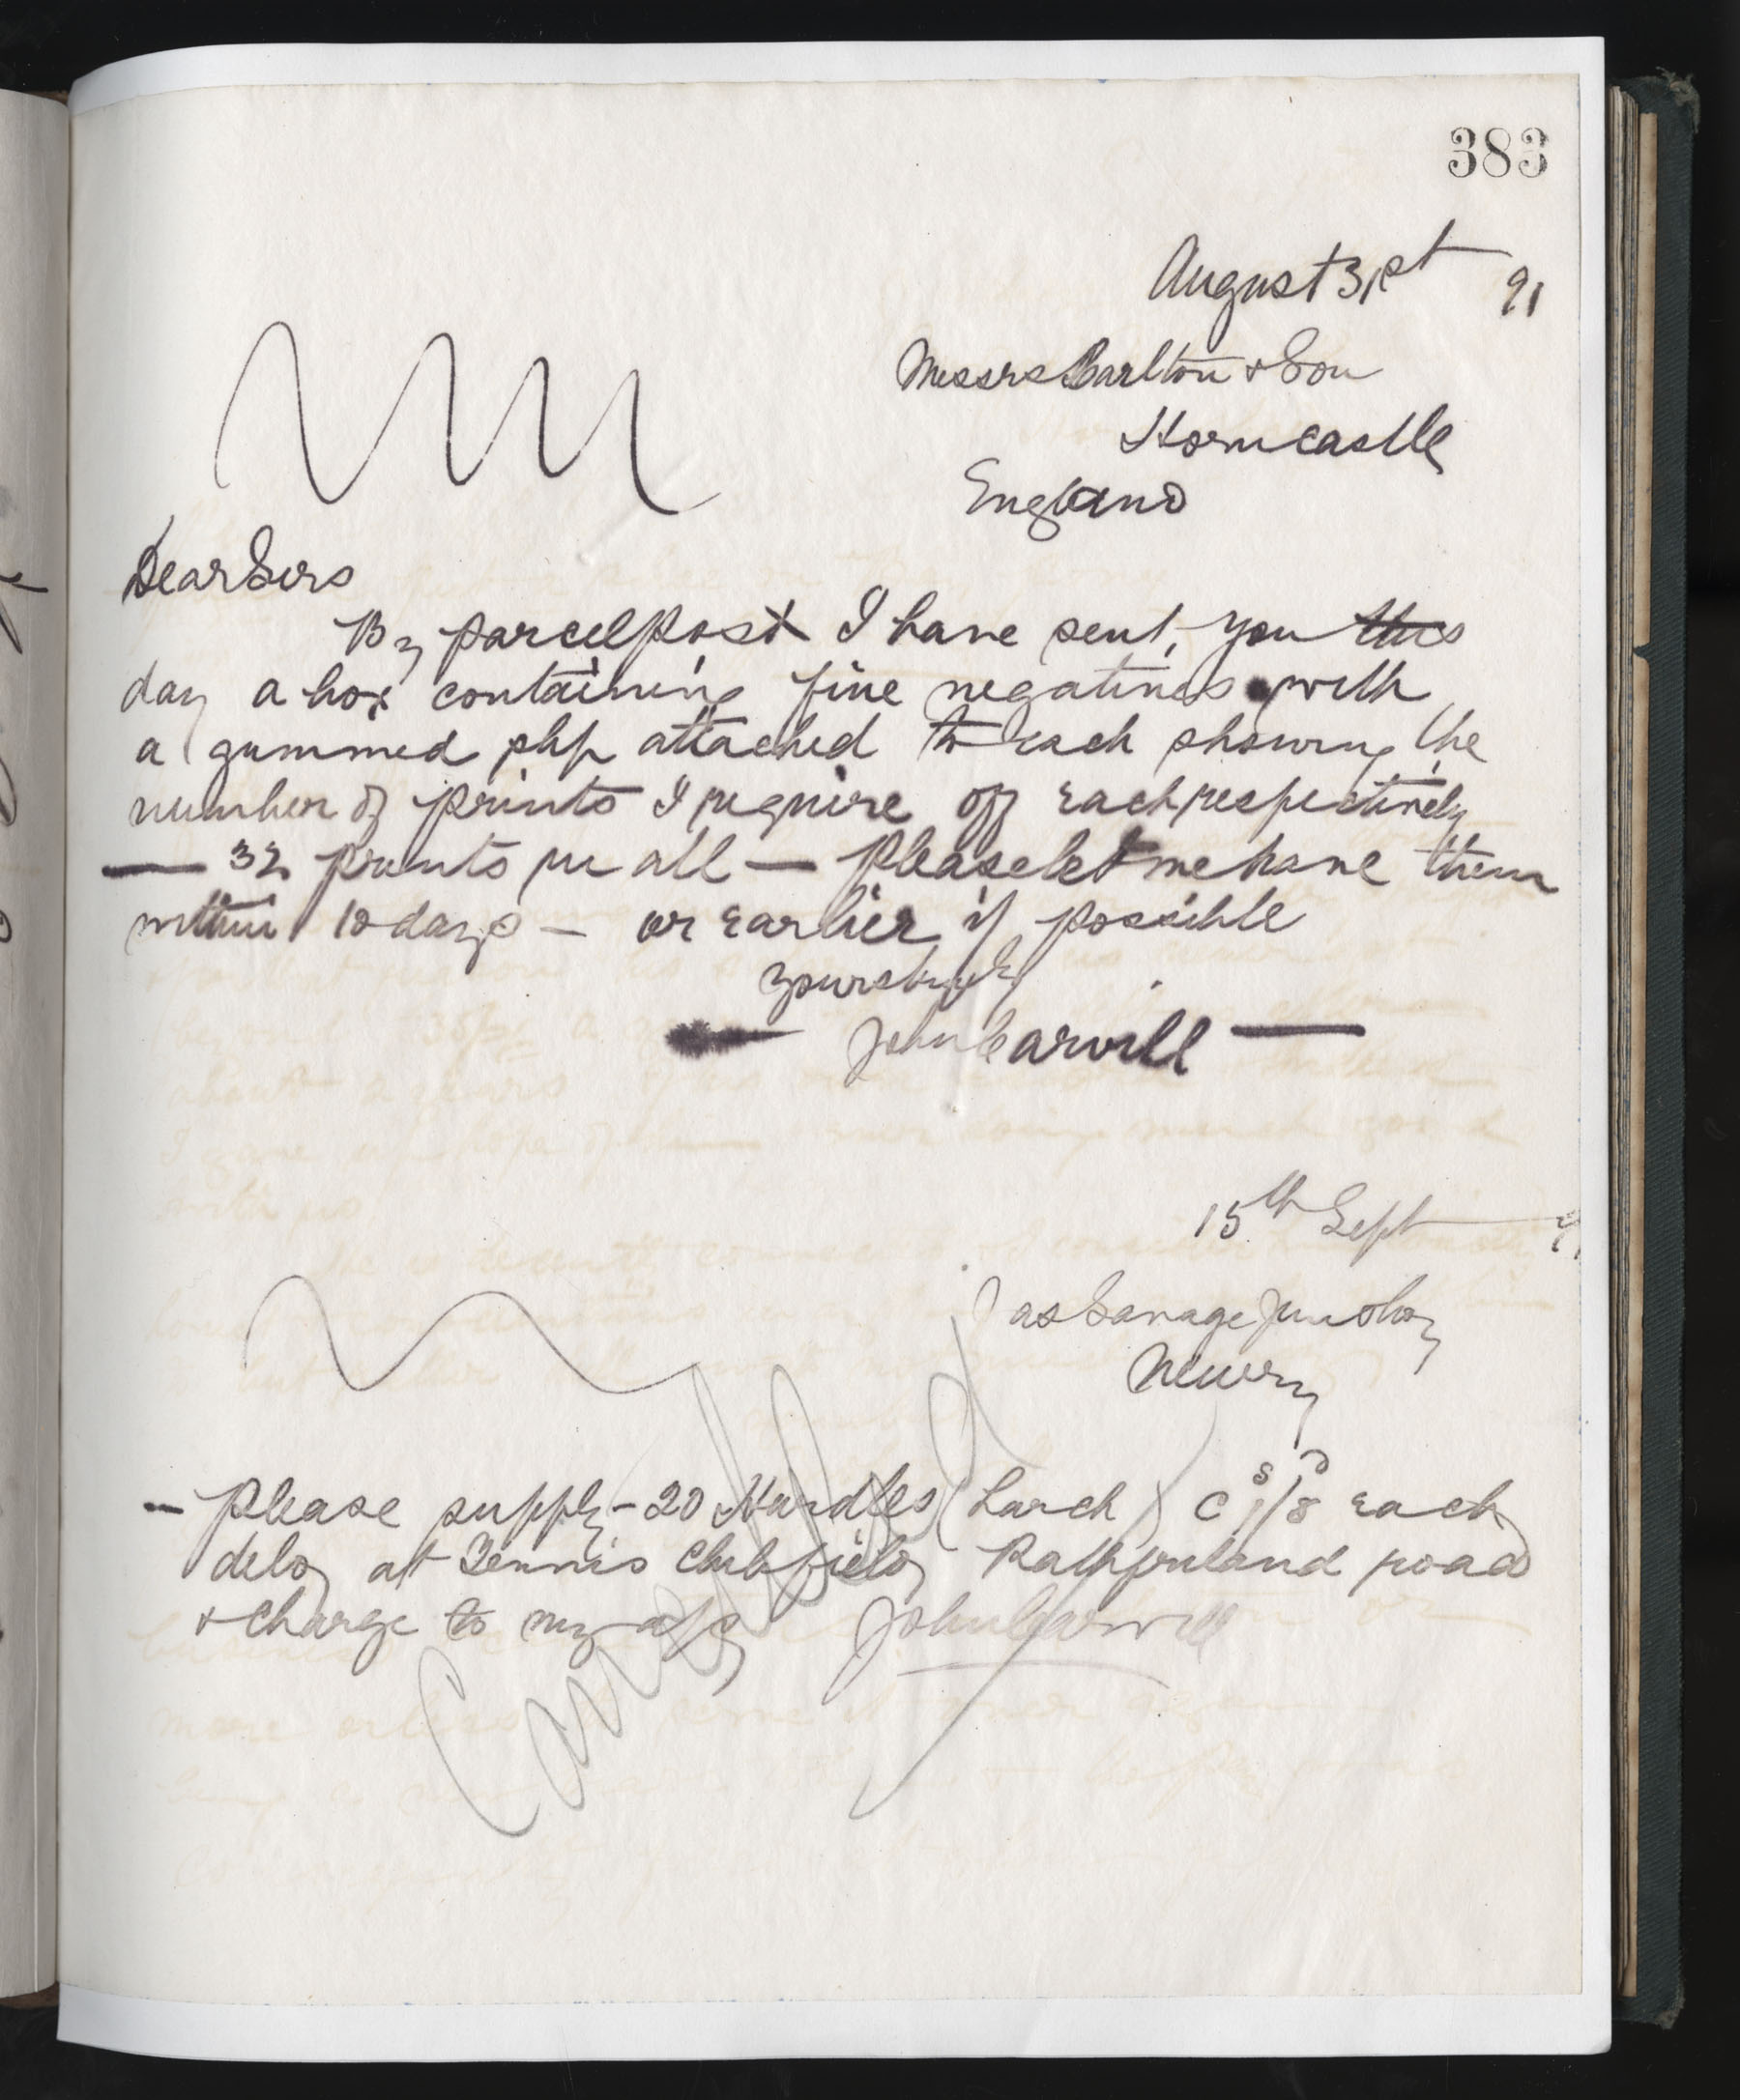 383
August 31st 91
Messrs Carlton & Son
Horncastle
England
Dear Sirs
By parcel post I have sent you this
day a box containing five negatives with
a gummed slip attached to each showing the
number of prints I require off each respectively
— 32 prints in all — please let me have them
within 10 days — or earlier if possible
Yours truly
— John Carvill —
15th Sept 91
Jas Savage Jun &
Newry
– Please supply – 20 Hurdles (Larch) @ 1s/8d each
deld at Tennis Club field Rathfriland road
& charge to my a/c John Carvill
Cancelled